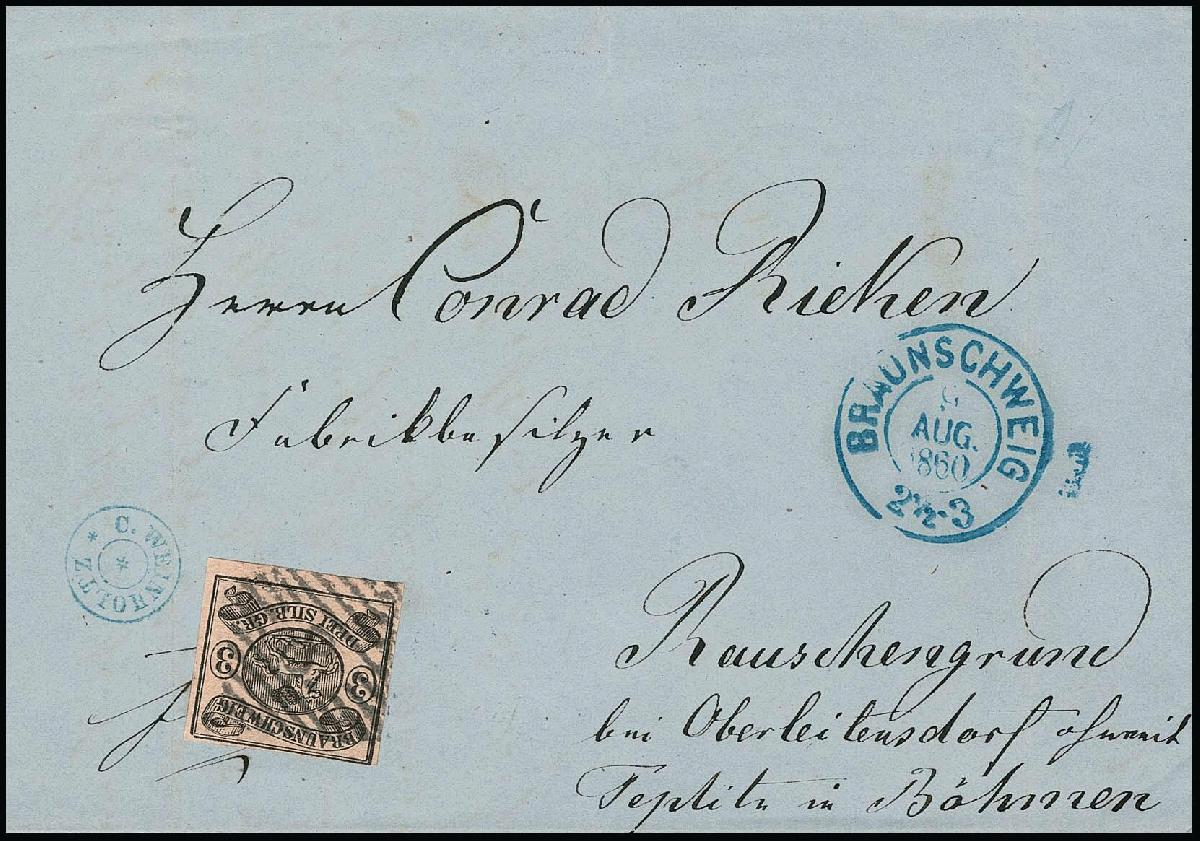 Herrn Conrad Rieken
Fabrikbesitzer
BRAUNSCHWEIG
9
AUG.
1860
2½-3
* C. WEINHOLTZ *
DREI SILB.GR.
3 3
BRAUNSCHWEIG
Rauschengrund
bei Oberleitensdorf ohnweit
Teplitz in Böhmen